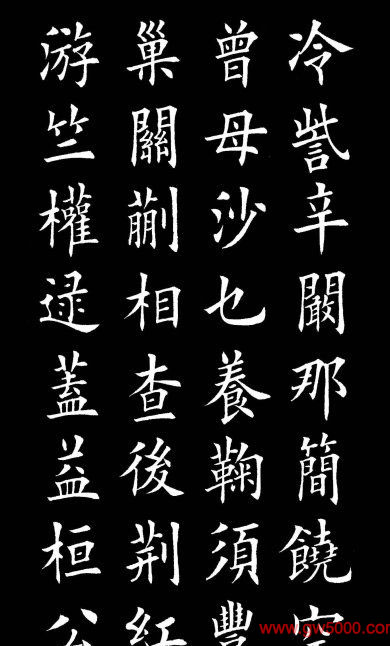 冷訾辛闞那簡饒空
曾母沙乜養鞠須豐
巢關蒯相查後荆紅
游竺權逯蓋益桓公
www.gw5000.com